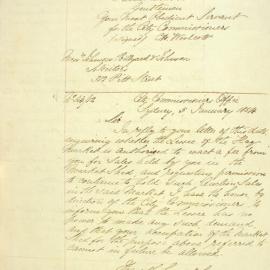 Gentlemen
Your Most Obedient Servant
for the City Commissioners
(signed)
Solicitors
Pitt Street
City Commissioners Office
Sydney, 5 January 1854
Sir
In reply to your letter of this date
enquiring whether the Lessee of the Hay
Market is authorised to exact a fee from
you for Sales held by you in the
Market Shed and requesting permission
to continue to hold such Auction Sales
in the said Market I have the honor by
direction of the City Commissioners to
inform you that the Lessee has no
power to make any such demand
and that your occupation of the Market
Shed for the purpose above referred to
cannot in future be allowed.